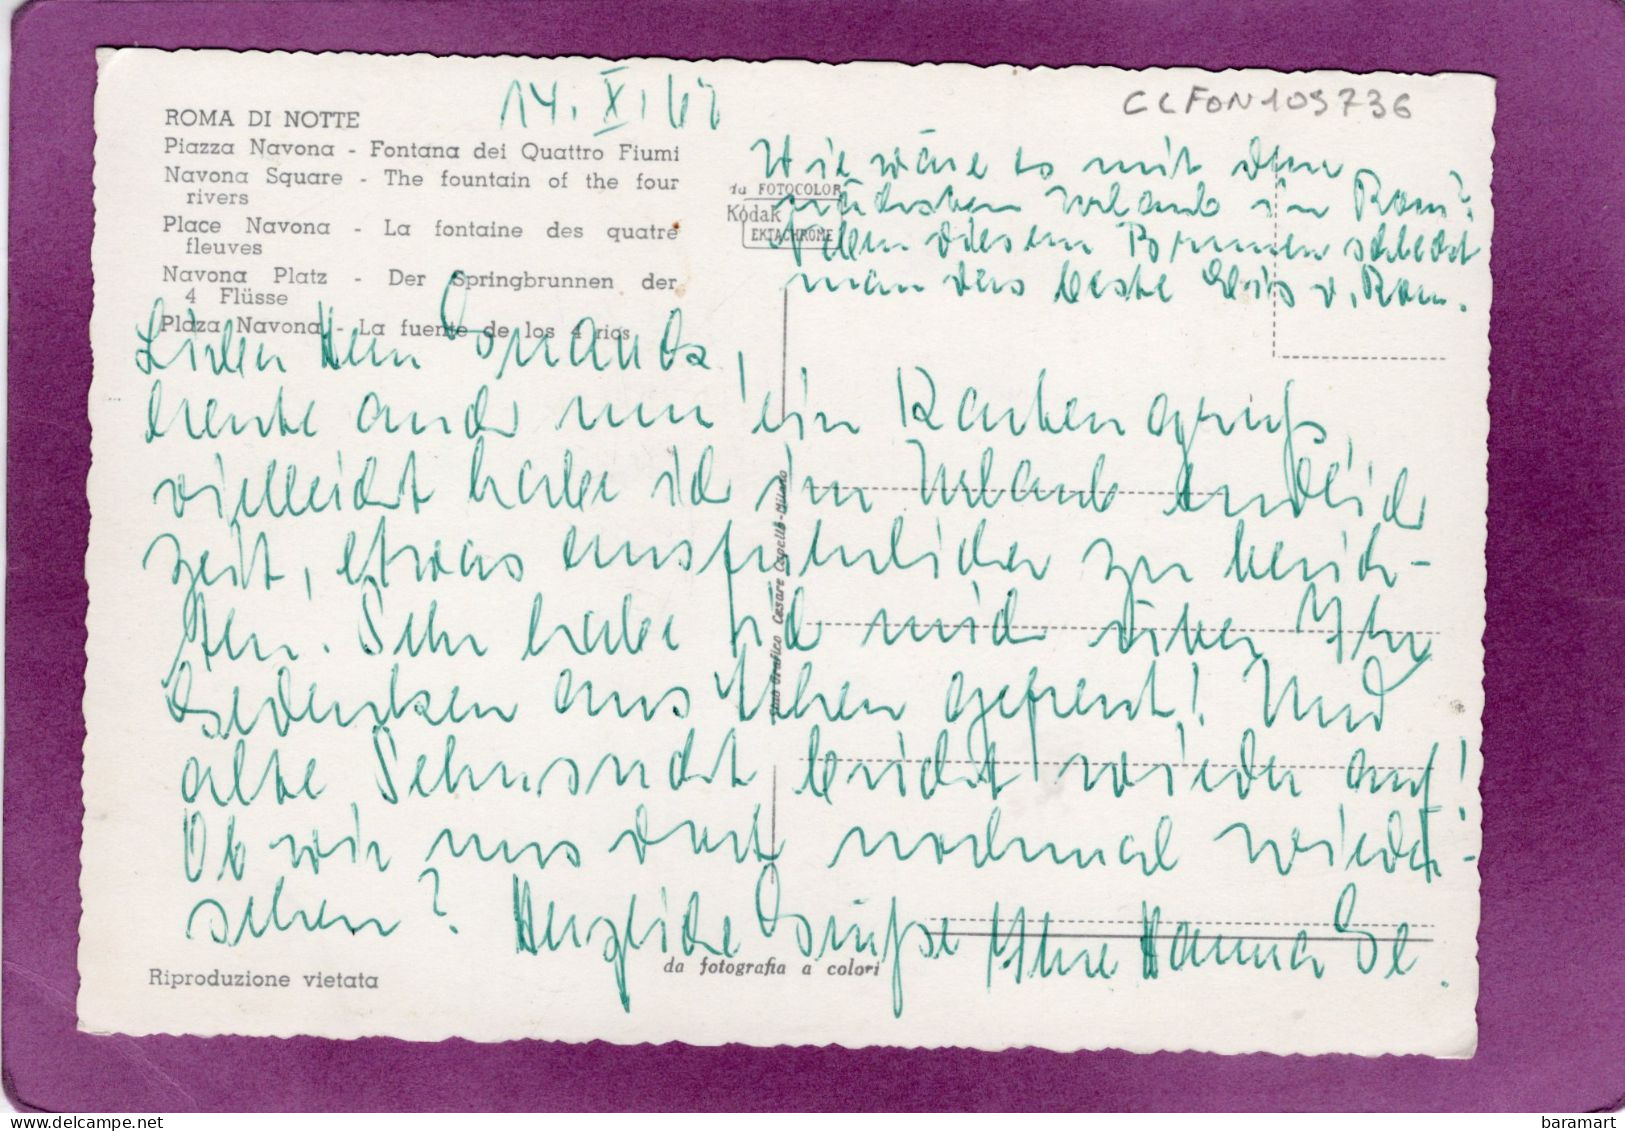 14. X. 61
CLFON109736
ROMA DI NOTTE
Piazza Navona - Fontana dei Quattro Fiumi
Navona Square - The fountain of the four
rivers
Place Navona - La fontaine des quatre
fleuves
Navona Platz - Der Springbrunnen der
4 Flüsse
Plaza Navona - La fuente de los 4 rios
da FOTOCOLOR
Kodak
EKTACHROME
Wie wäre es mit dem
nächsten Urlaub in Rom?
diesem Brunnen schleckt
man das beste Eis v. Rom.
Lieber Herr
heute auch nur ein Kartengruß,
vielleicht habe ich im Urlaub endlich
Zeit, etwas ausführlicher zu berich-
ten. Sehr habe ich mich über Ihr
Gedenken aus gefreut! Und
alte Sehnsucht bricht wieder auf!
Ob wir uns dort nochmal wieder-
sehen? Herzliche Grüße Ihre Hanna
Grafico Cesare Capello - Milano
da fotografia a colori
Riproduzione vietata
baramart delcampe.net